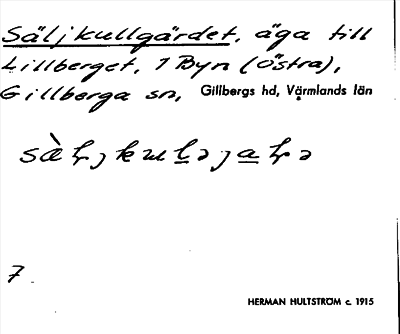 Säljkullgärdet, äga till
Lillberget, 1 Byn (östra),
Gillberga sn, Gillbergs hd, Värmlands län
7
HERMAN HULTSTRÖM c. 1915